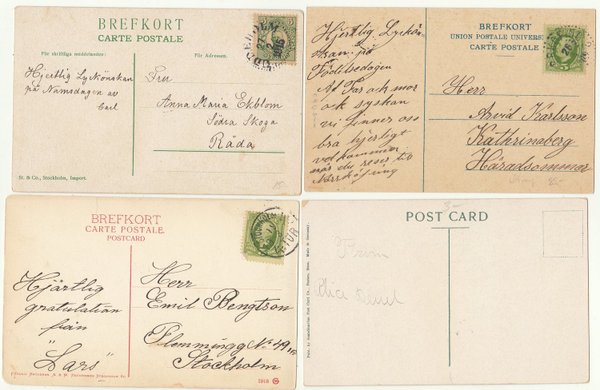 BREFKORT
CARTE POSTALE
För skriftliga meddelanden:
För Adressen.
Hjertlig Lyckönskan
på Namsdagen av
Carl
Fru
Anna Maria Ekblom
Södra Skoga
Råda
St. & Co., Stockholm, Import.
Hjertlig Lyckön-
skan på
Födelsedagen
Af Far och mor
och syskan
vi finner oss
bra hjertligt
velkommen
når du reser til
Norrköping
BREFKORT
UNION POSTALE UNIVERSELLE
CARTE POSTALE
Herr
Arvid Karlsson
Kathrineberg
Häradsommar
BREFKORT
CARTE POSTALE.
POSTCARD
Hjärtlig
gratulation
från
"Lars"
Herr
Emil Bengtson
Flemmingg No 49
Stockholm
1918
POST CARD
From